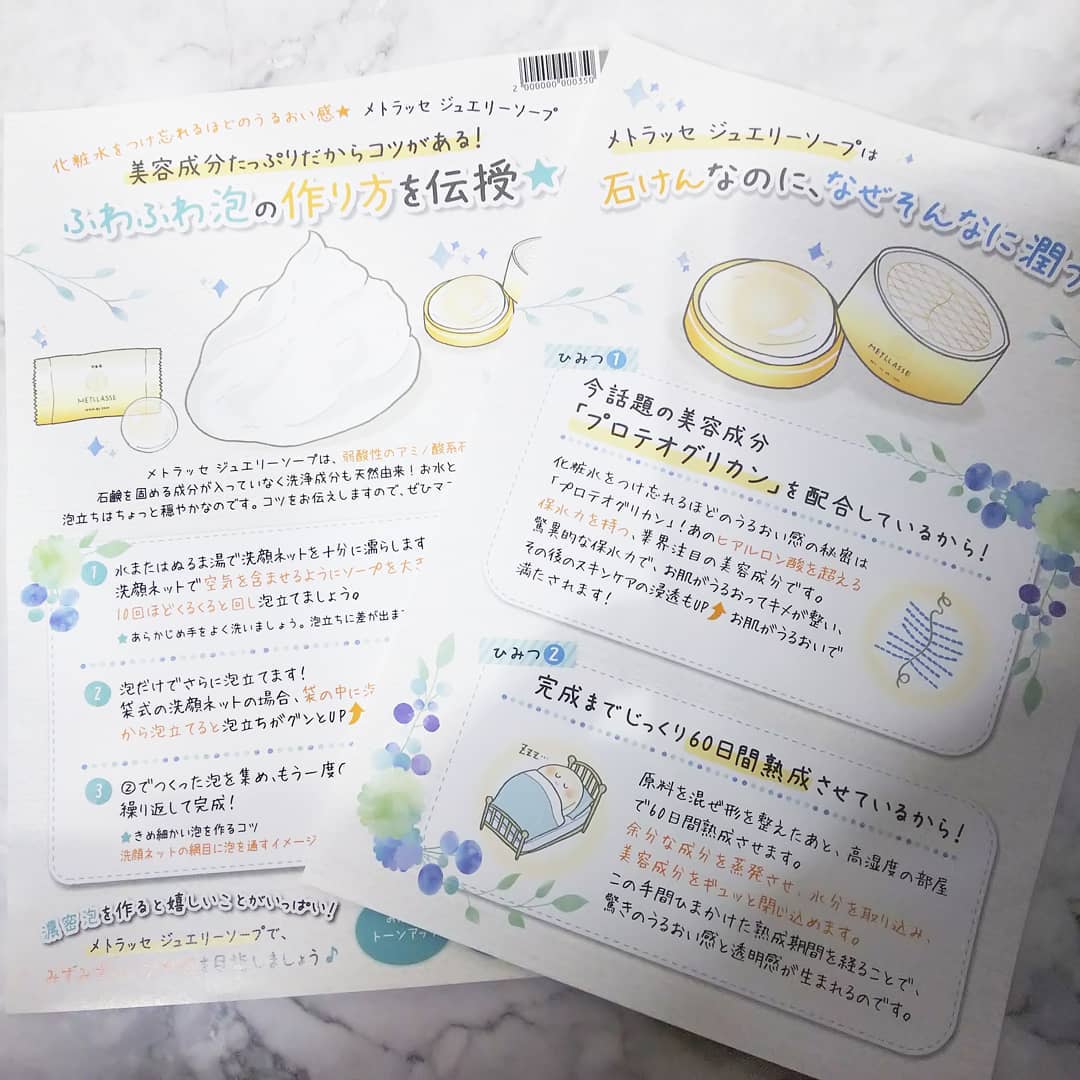 2 000000 000350
化粧水をつけ忘れるほどのうるおい感★ メトラッセ ジュエリーソープ
美容成分たっぷりだからコツがある!
ふわふわ泡の作り方を伝授★
METLLASSE
メトラッセ ジュエリーソープは、弱酸性のアミノ酸系
石鹸を固める成分が入っていなく洗浄成分も天然由来!お水と
泡立ちはちょっと穏やかなのです。コツをお伝えしますので、ぜひマ
1
水またはぬるま湯で洗顔ネットを十分に濡らします
洗顔ネットで空気を含ませるようにソープを大き
10回ほどくるくると回し泡立てましょう。
★あらかじめ手をよく洗いましょう。泡立ちに差が出ま
2
泡だけでさらに泡立てます!
袋式の洗顔ネットの場合、袋の中に
から泡立てると泡立ちがグンとUP
3
②でつくった泡を集め、もう一度
繰り返して完成!
★きめ細かい泡を作るコツ
洗顔ネットの網目に泡を通すイメージ
濃密泡を作ると嬉しいことがいっぱい!
メトラッセ ジュエリーソープで、
みずみず
を目指しましょう♪
トーンアッ
メトラッセ ジュエリーソープは
石けんなのに、なぜそんなに潤
METLLASSE
ひみつ1
今話題の美容成分
「プロテオグリカン」を配合しているから!
化粧水をつけ忘れるほどのうるおい感の秘密は
「プロテオグリカン」!あのヒアルロン酸を超える
保水力を持つ、業界注目の美容成分です。
驚異的な保水力で、お肌がうるおってキメが整い、
その後のスキンケアの浸透もUP お肌がうるおいで
満たされます!
ひみつ2
完成までじっくり60日間熟成させているから!
ZZZ...
原料を混ぜ形を整えたあと、高湿度の部屋
で60日間熟成させます。
余分な成分を蒸発させ、水分を取り込み、
美容成分をギュッと閉じ込めます。
この手間ひまかけた熟成期間を経ることで、
驚きのうるおい感と透明感が生まれるのです。